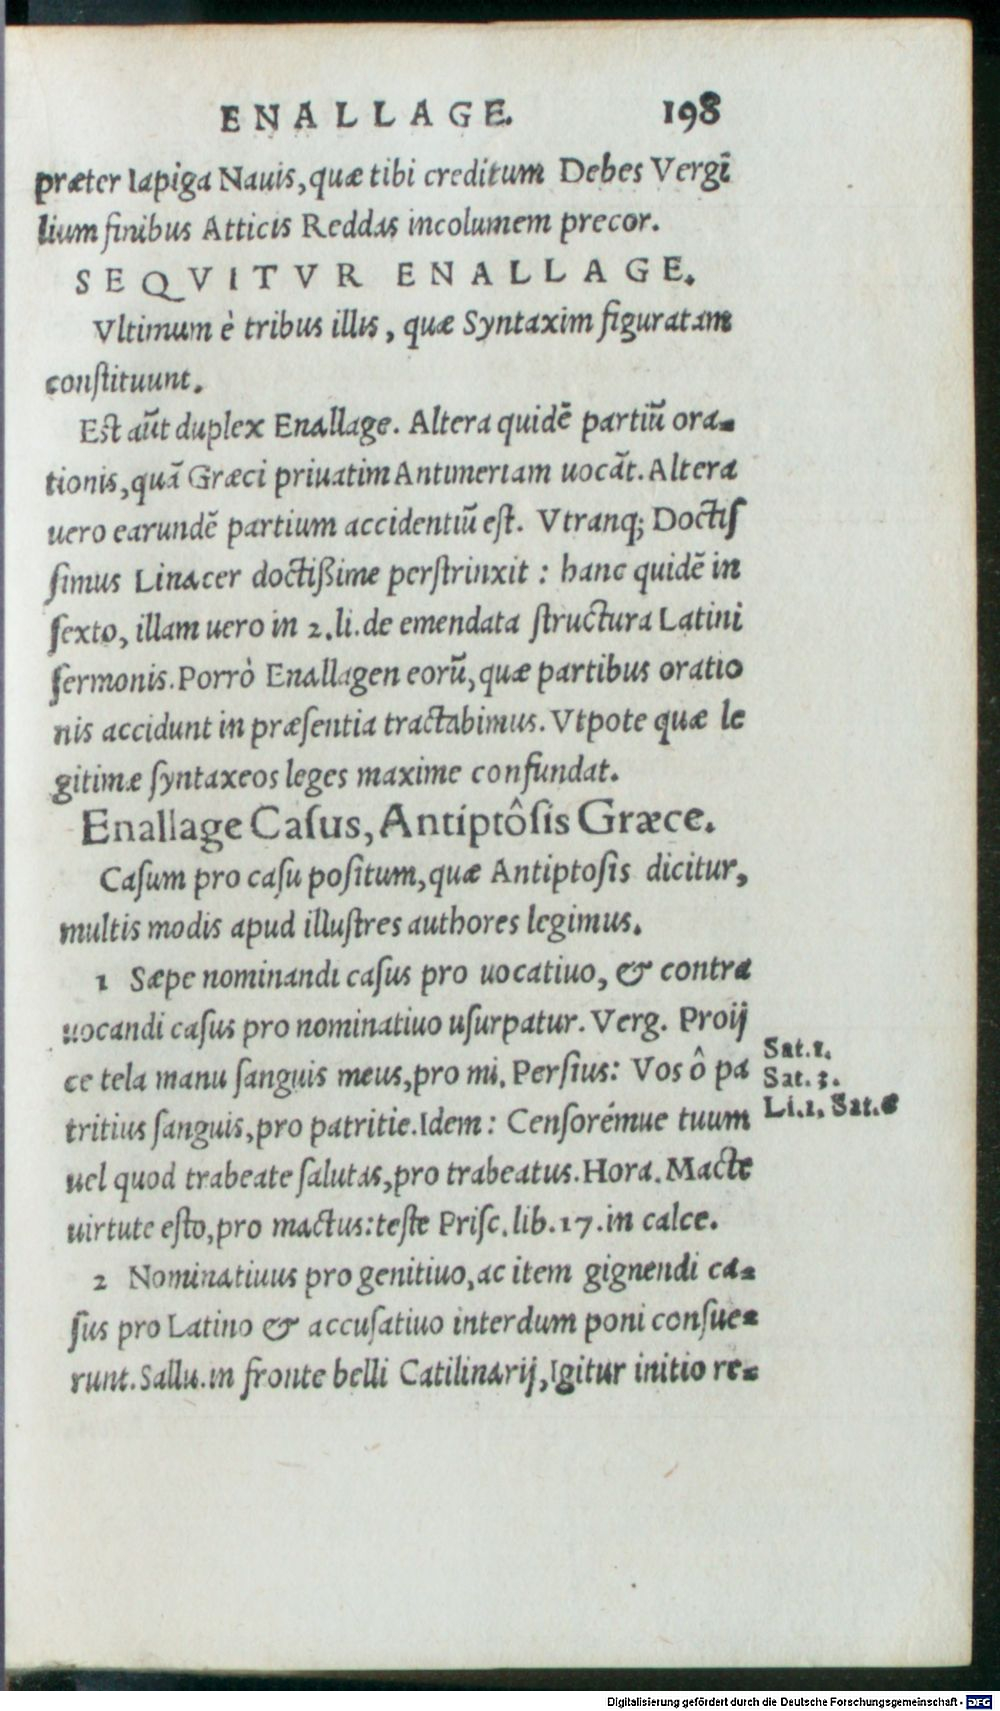 ENALLAGE. 198
præter Iapiga Nauis, quæ tibi creditum Debes Vergĩ
lium finibus Atticis Reddas incolumem precor.
SEQVITVR ENALLAGE.
Vltimum è tribus illis, quæ Syntaxim figuratam
conſtituunt.
Eſt aũt duplex Enallage. Altera quidẽ partiũ ora-
tionis, quã Græci priuatim Antimeriam uocãt. Altera
uero earundẽ partium accidentiũ eſt. Vtranq; Doctiſ
ſimus Linacer doctißime perſtrinxit: hanc quidẽ in
ſexto, illam uero in 2. li. de emendata ſtructura Latini
ſermonis. Porrò Enallagen eorũ, quæ partibus oratio
nis accidunt in præſentia tractabimus. Vtpote quæ le
gitimæ ſyntaxeos leges maxime confundat.
Enallage Caſus, Antiptôſis Græce.
Caſum pro caſu poſitum, quæ Antiptoſis dicitur,
multis modis apud illuſtres authores legimus.
1 Sæpe nominandi caſus pro uocatiuo, & contra
uocandi caſus pro nominatiuo uſurpatur. Verg. Proij
ce tela manu ſanguis meus, pro mi. Perſius: Vos ô pa
Sat. 1.
tritius ſanguis, pro patritie. Idem: Cenſorémue tuum
Sat. 3.
uel quod trabeate ſalutas, pro trabeatus. Hora. Macte
Li. 1. Sat. 6
uirtute eſto, pro mactus: teſte Priſc. lib. 17. in calce.
2 Nominatiuus pro genitiuo, ac item gignendi ca-
ſus pro Latino & accuſatiuo interdum poni conſue-
runt. Sallu. in fronte belli Catilinarij, Igitur initio re-
Digitalisierung gefördert durch die Deutsche Forschungsgemeinschaft - DFG